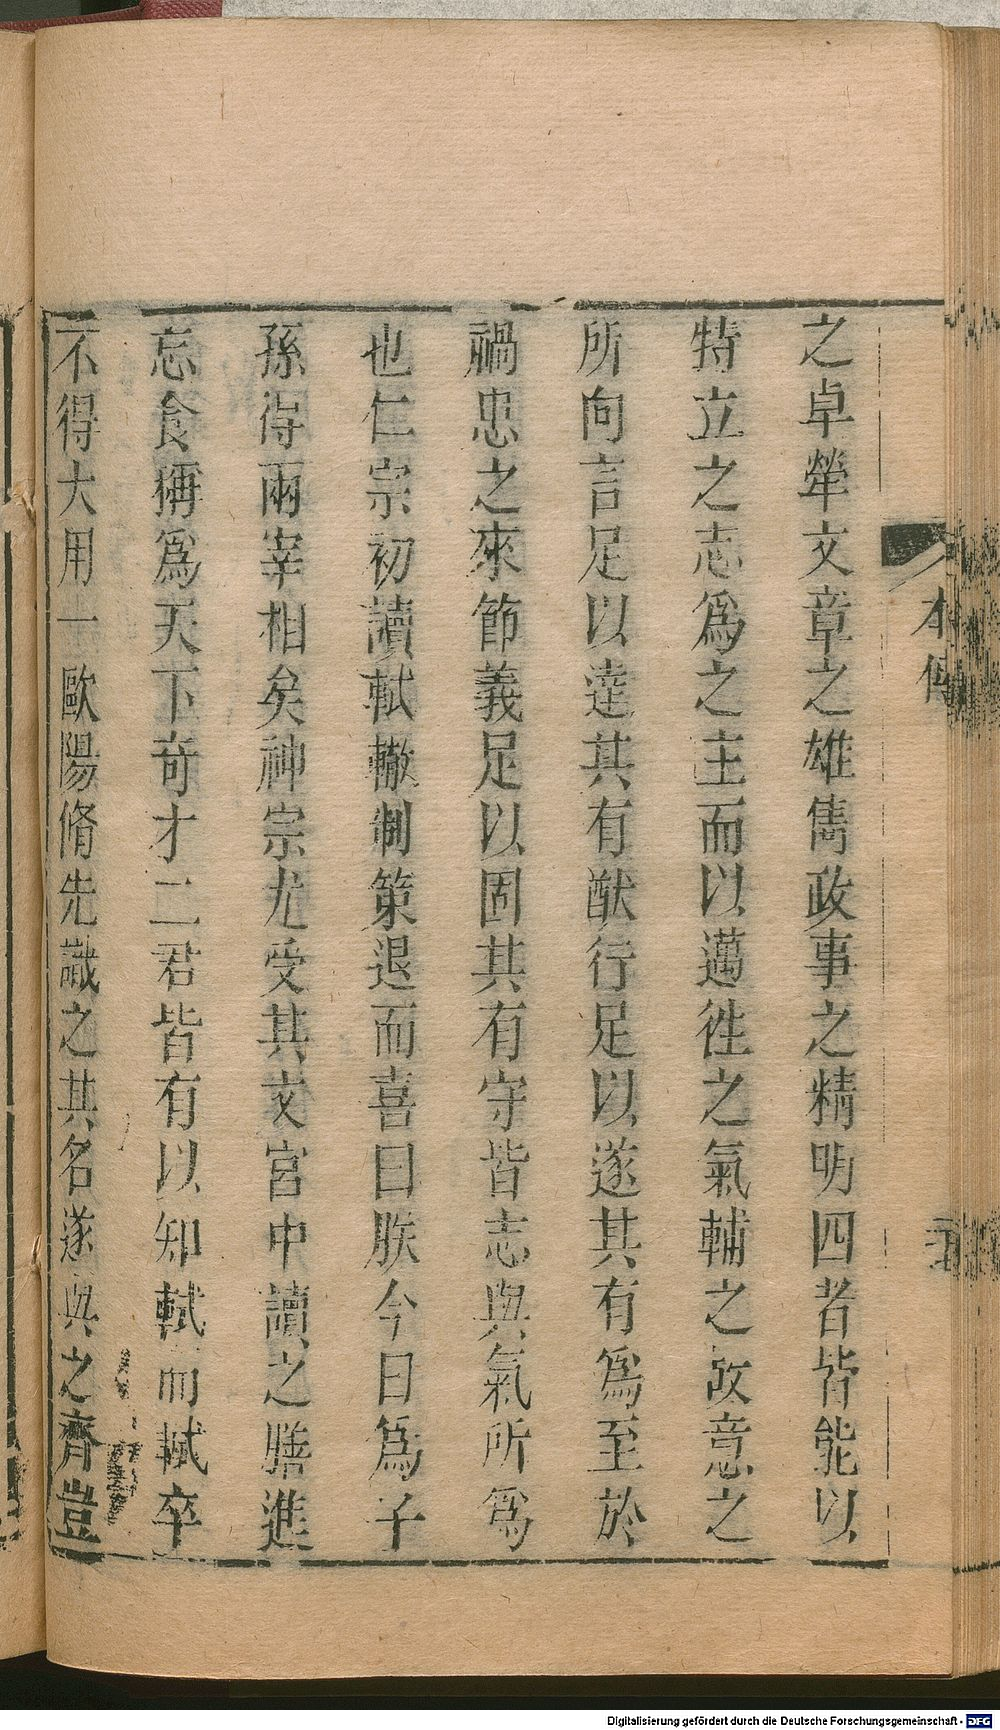 之卓犖文章之雄雋政事之精明四者皆能以
特立之志爲之主而以邁徃之氣輔之故意之
所向言足以達其有猷行足以遂其有爲至於
禍患之來節義足以固其有守皆志與氣所爲
也仁宗初讀軾轍制策退而喜曰朕今日爲子
孫得兩宰相矣神宗尤愛其文宮中讀之膳進
忘食稱爲天下奇才二君皆有以知軾而軾卒
不得大用一歐陽脩先識之其名遂與之齊豈
本傳
Digitalisierung gefördert durch die Deutsche Forschungsgemeinschaft - DFG